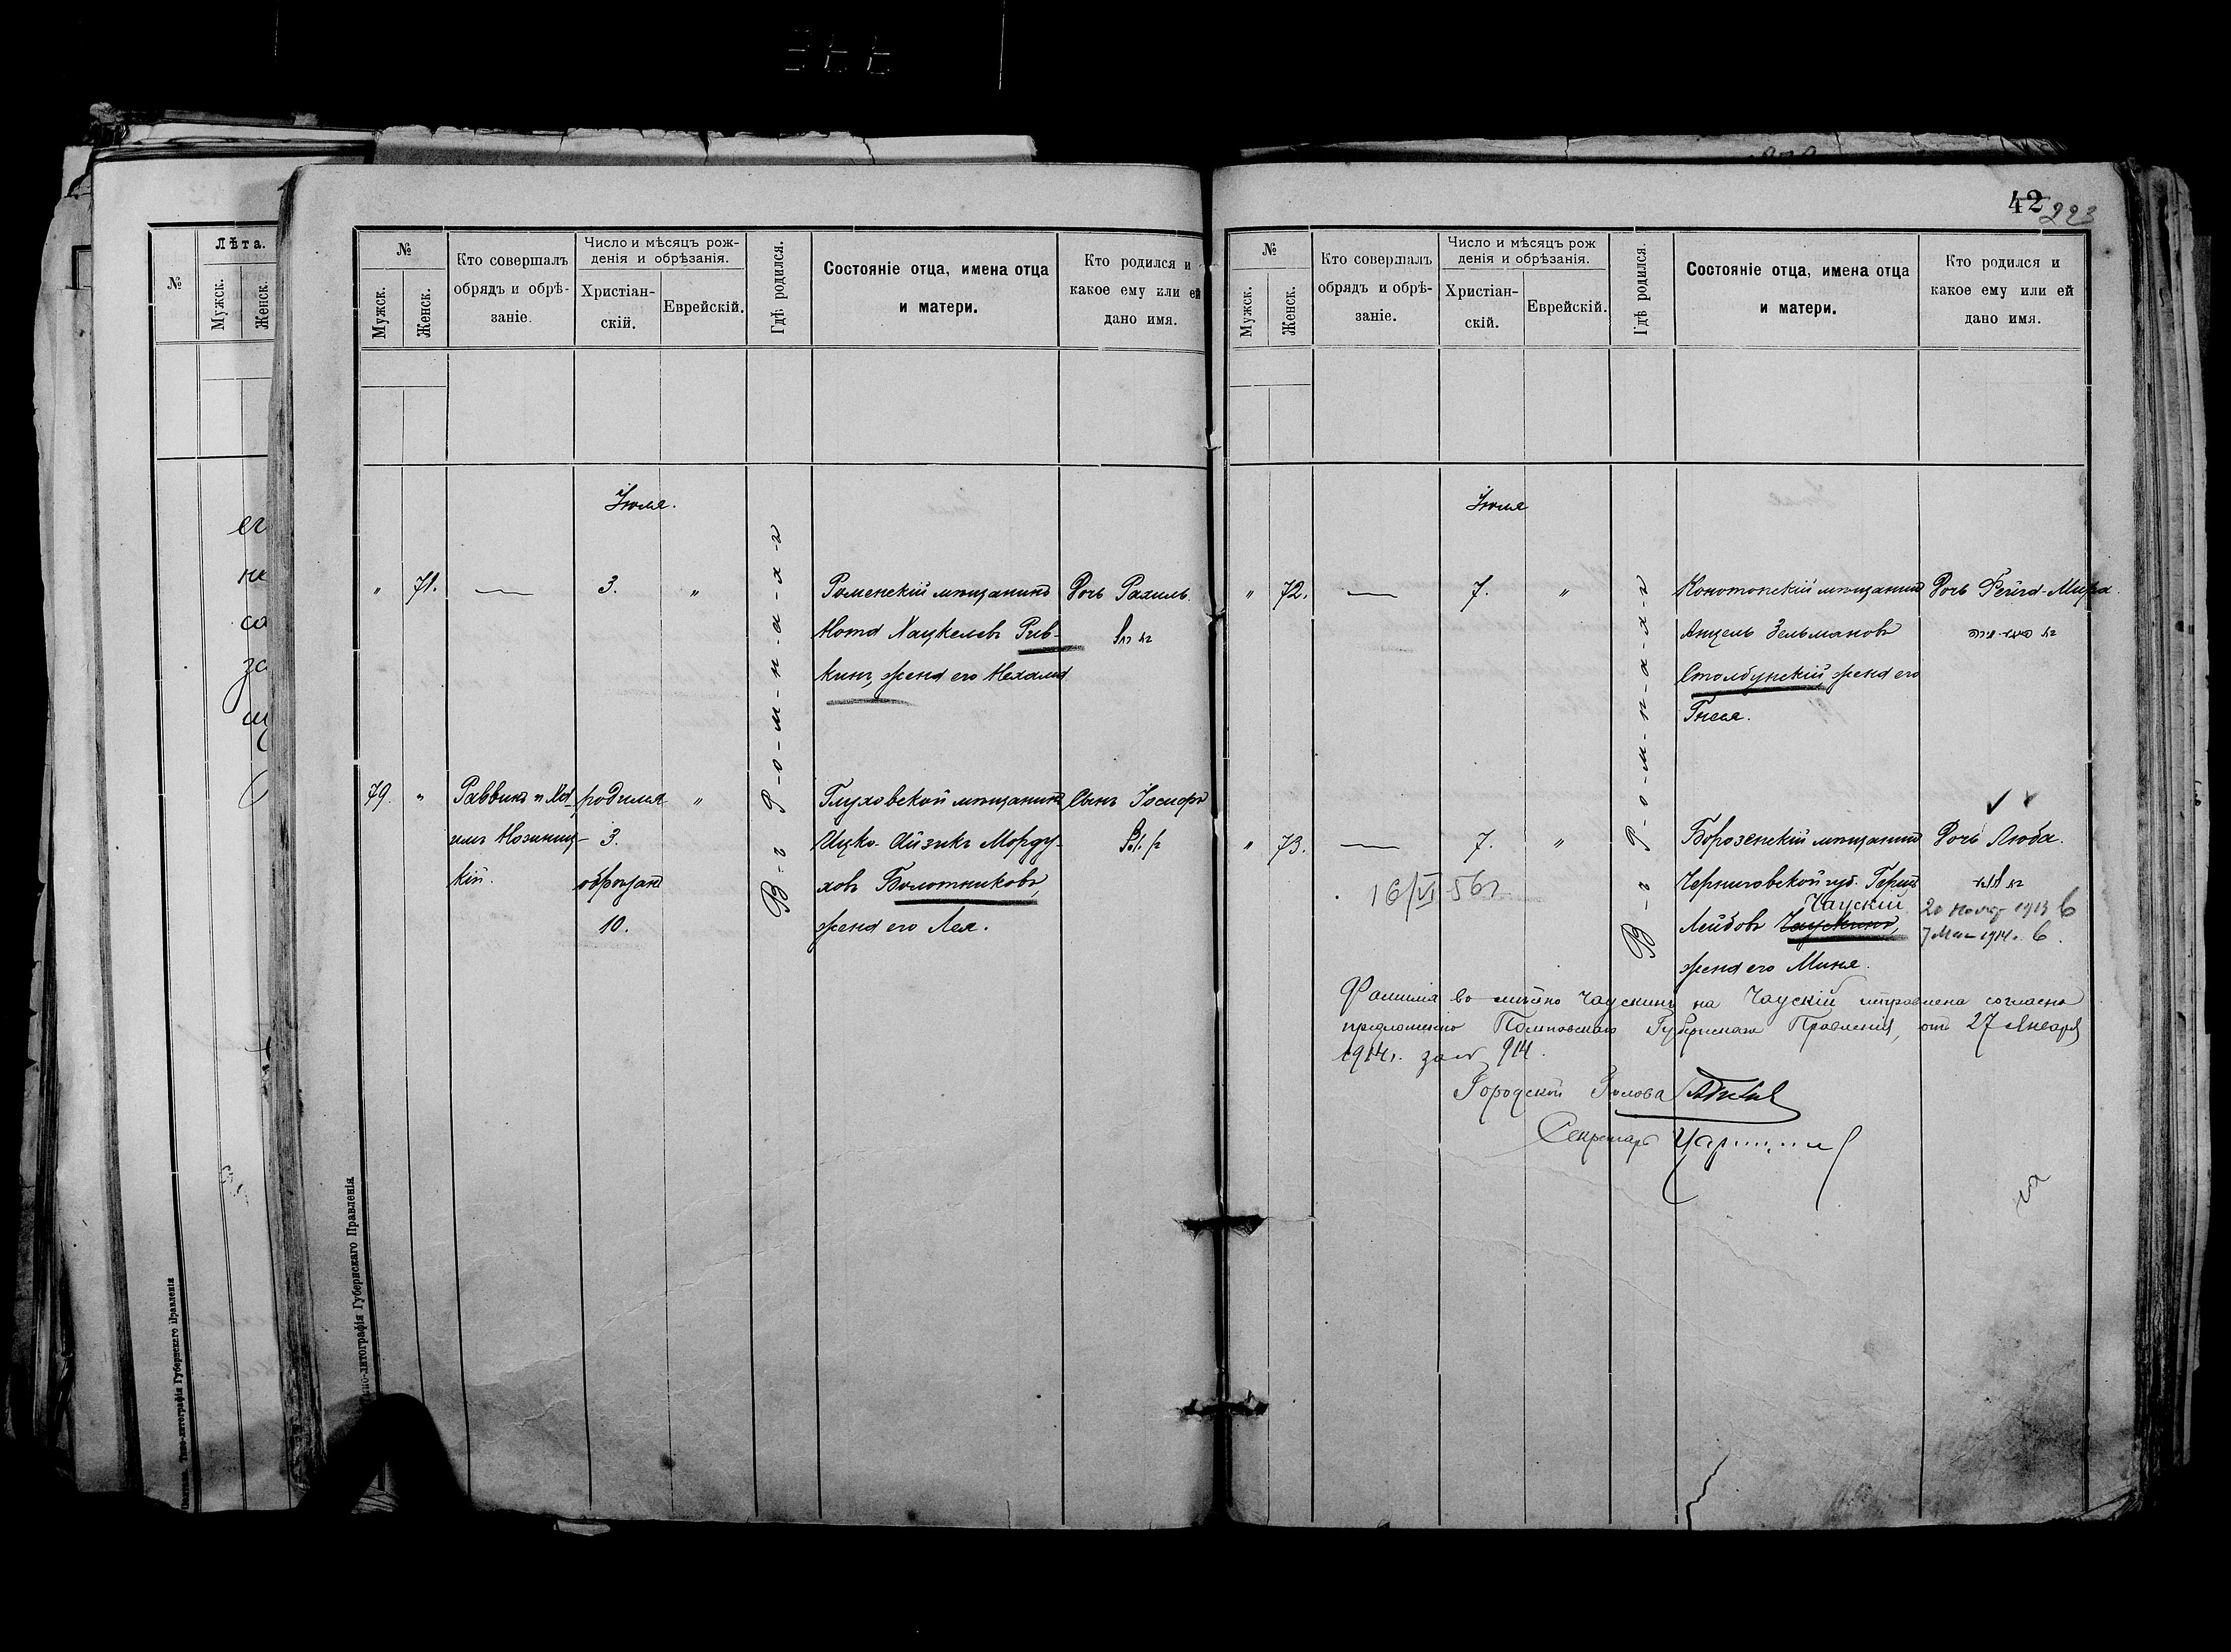 42 223
№
Лѣта.
Мужск.
Женск.
№
Мужск.
Женск.
Кто совершалъ
обрядъ и обрѣ-
заніе.
Число и мѣсяцъ рож-
денія и обрѣзанія.
Христіан-
скій.
Еврейскій.
Гдѣ родился.
Состояніе отца, имена отца
и матери.
Кто родился и
какое ему или ей
дано имя.
Іюля.
" 71. — 3. "
Роменскій мѣщанинъ
Нота Хацкелевъ Рив-
кинъ, жена его Нехама
Дочь Рахиль.
79. "
Раввинъ
кій.
родился
3.
обрѣзанъ
10.
"
В-ъ Р-о-м-н-а-х-ъ
Глуховской мѣщанинъ
Ицко-Айзикъ Морду-
ховъ Болотниковъ,
жена его Лея.
Сынъ Іосифъ
Типо-литографія Губернскаго Правленія
№
Мужск.
Женск.
Кто совершалъ
обрядъ и обрѣ-
заніе.
Число и мѣсяцъ рож
денія и обрѣзанія.
Христіан-
скій.
Еврейскій.
Гдѣ родился.
Состояніе отца, имена отца
и матери.
Кто родился и
какое ему или ей
дано имя.
Іюля
" 72. — 7. "
Конотопскій мѣщанинъ
Анцель Зельмановъ
Столбунскій, жена его
Гнеся.
Дочь Фейга-Мира.
" 73. — 7. "
16/VI 56г
В-ъ Р-о-м-н-а-х-ъ
Борозенскій мѣщанинъ
Черниговской губ. Герш
Чаускій
Лейбовъ Чаускинъ,
жена его Миня.
Дочь Люба.
20 1913
7 Мая 1914 г.
Фамилія вмѣсто Чаускинъ на Чаускій исправлена согласно
предложенію Полтавскаго Губернскаго Правленія, отъ 27 Января
1914 г. за № 914.
Городской Голова
Секретарь